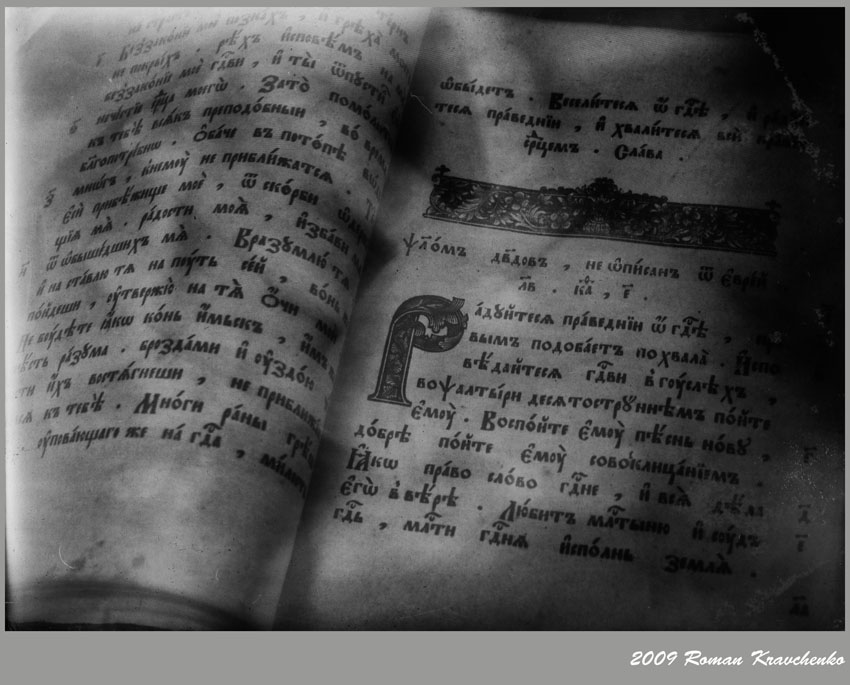 не покрыхъ . рѣ́хъ и҆сповѣ́мъ на мѧ̀
беззако́нїе моѐ гдⷭ҇ви , и҆ ты̀ ѿпꙋсти́лъ
нече́стїе срⷣца моегѡ̀ . За то̀ помо́литсѧ
къ тебѣ̀ всѧ́къ преподо́бныи , во вре́мѧ
благопотре́бно . Ѻ҆ба́че въ пото́пѣ во́дъ
мно́гъ , къ немꙋ̀ не прибли́жатсѧ .
є҆сѝ прибѣ́жище моѐ , ѿ ско́рби ѡ҆держа́
щїѧ мѧ̀ . ра́дости моѧ̀ , и҆зба́ви мѧ̀
ѿ ѡ҆быше́дшихъ мѧ̀ . Вразꙋмлю́ тѧ
и҆ наста́влю тѧ на пꙋ́ть се́й , во́нь же
по́йдеши , ᲂу҆твержꙋ̀ на тѧ̀ ѻ҆́чи моѝ
Не бꙋ́дѣте ꙗ҆́кѡ ко́нь и҆ мьскъ , и҆́мже
нѣ́сть ра́зꙋма . брозда́ми и҆ ᲂу҆здо́ю
сти и҆́хъ востѧ́гнеши , не приближа́
къ тебѣ̀ . Мно́ги ра́ны грѣ́ш
ᲂу҆пова́ющаго же на гдⷭ҇а , ми́лость
ѡ҆бы́детъ . Весели́тесѧ ѡ҆ гдⷭ҇ѣ , и҆ ра́д
тесѧ пра́веднїи , и҆ хвали́тесѧ всѝ пра́вїи
срⷣцемъ . Сла́ва .
ѱало́мъ дв҃довъ , не ѡ҆пи́санъ ѿ є҆вре́й
л҃в . ка҃ѳ , є҃ .
Ра́дꙋйтесѧ пра́веднїи ѡ҆ гдⷭ҇ѣ , пра́
вымъ подоба́етъ похвала̀ . И҆спо
вѣ́дайтесѧ гдⷭ҇ви в гꙋ́слехъ ,
во ѱалты́ри десѧтострꙋ́ннѣмъ по́йте
є҆мꙋ̀ . Воспо́йте є҆мꙋ̀ пѣ́снь но́вꙋ ,
до́брѣ по́йте є҆мꙋ̀ совоклица́нїемъ .
Ꙗ҆́кѡ пра́во сло́во гдⷭ҇не , и҆ всѧ̀ дѣ́ла
є҆гѡ̀ в вѣ́рѣ . Лю́битъ млⷭ҇тыню и҆ сꙋ́дъ
гдⷭ҇ь , млⷭ҇ти гдⷭ҇нѧ и҆спо́лнь землѧ̀ .
2009 Roman Kravchenko